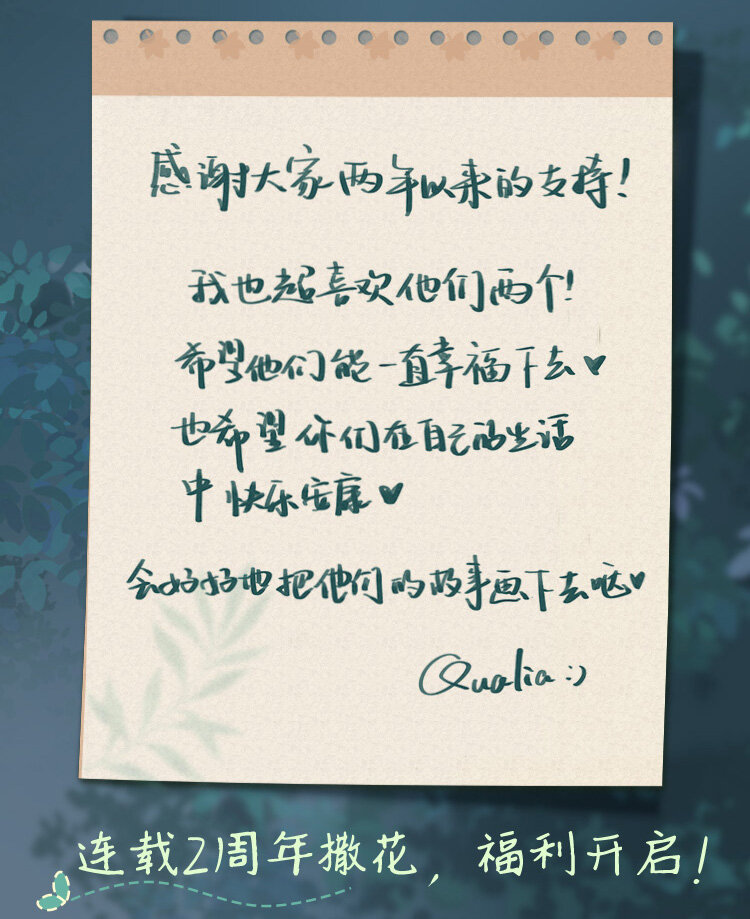 感谢大家两年以来的支持!
我也超喜欢他们两个!
希望他们能一直幸福下去♥
也希望你们在自己的生活
中快乐安康♥
会好好地把他们的故事画下去哒♥
Qualia:)
连载2周年撒花，福利开启!